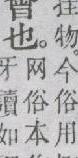 物。今俗用
也。网俗本
牙讀如